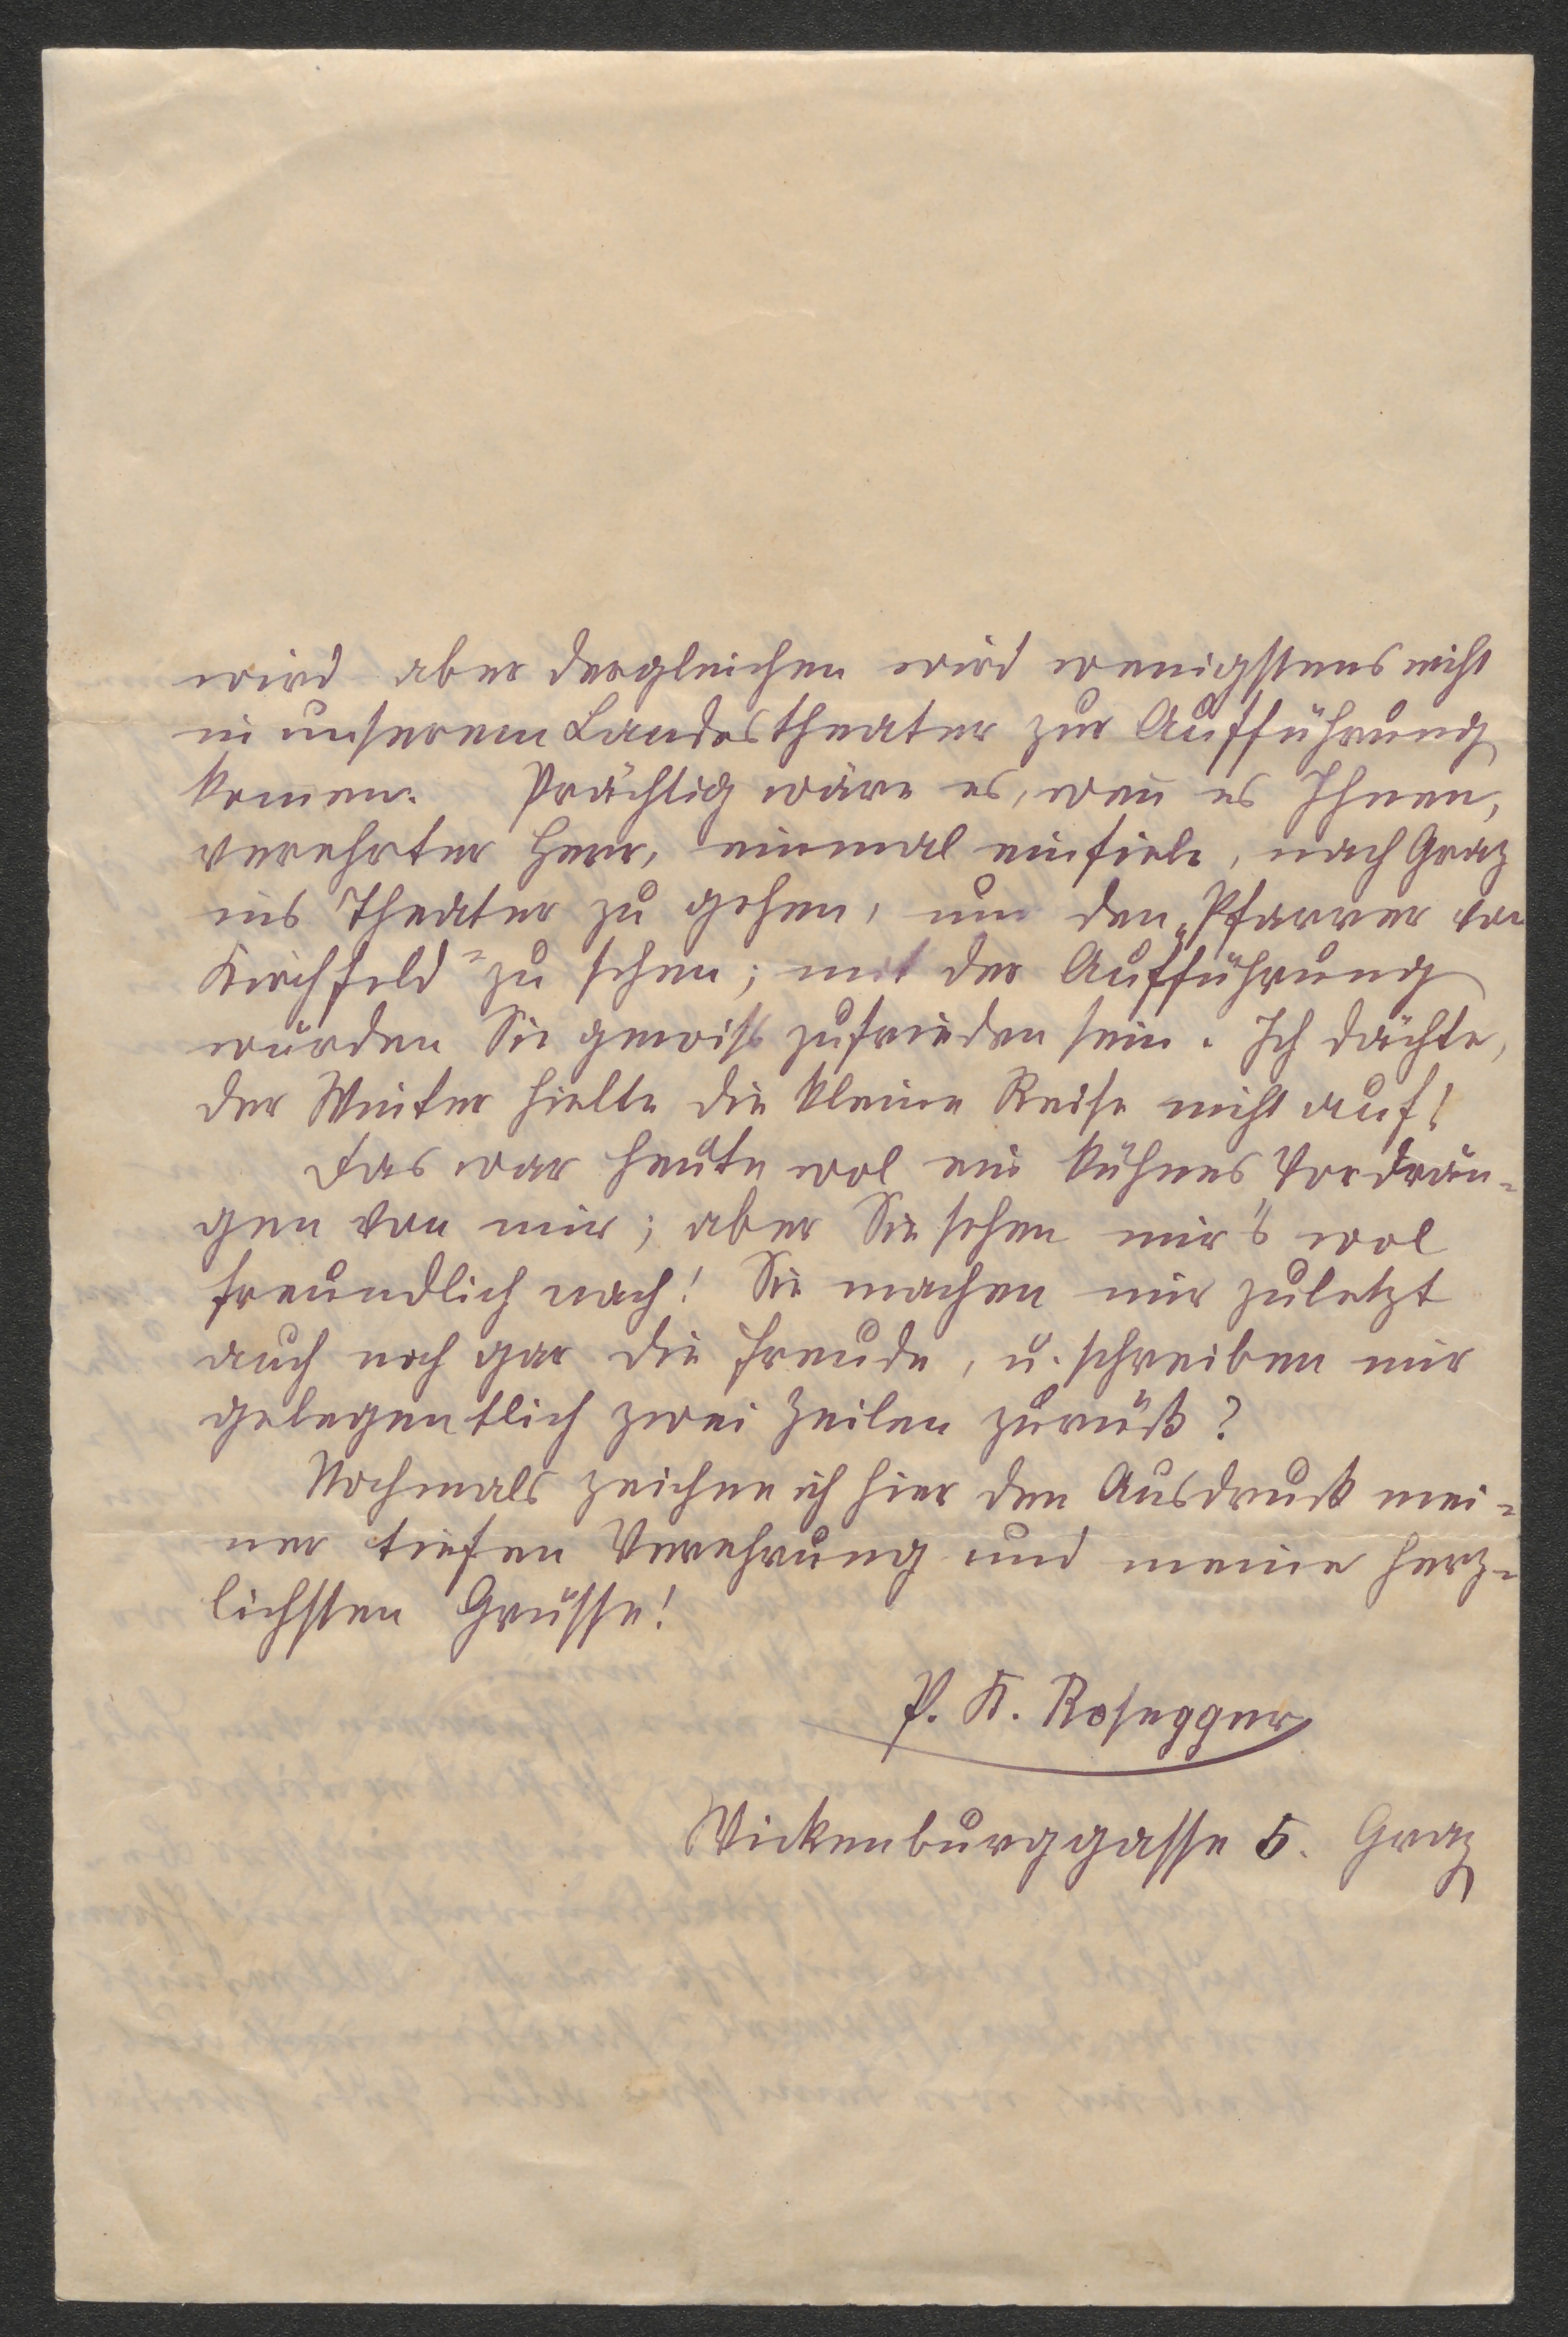 wird aber dergleichen wird wenigstens nicht
in unserem Landestheater zur Aufführung
kom̅en. Prächtig wäre es, wen̅ es Ihnen,
verehrter Herr, einmal einfiele, nach Graz
ins Theater zu gehen, um den „Pfarrer von
Kirchfeld“ zu sehen; mit der Aufführung
würden Sie gewiss zufrieden sein. Ich dächte,
der Winter hielte die kleine Reise nicht auf!
Das war heute wol ein kühnes Vordrän=
gen von mir; aber Sie sehen mir's wol
freundlich nach! Sie machen mir zuletzt
auch noch gar die Freude, u. schreiben mir
gelegentlich zwei Zeilen zurück?
Nochmals zeichne ich hier den Ausdruck mei=
ner tiefen Verehrung und meine herz=
lichsten Grüsse!
P. K. Rosegger
Wickenburggasse 5. Graz